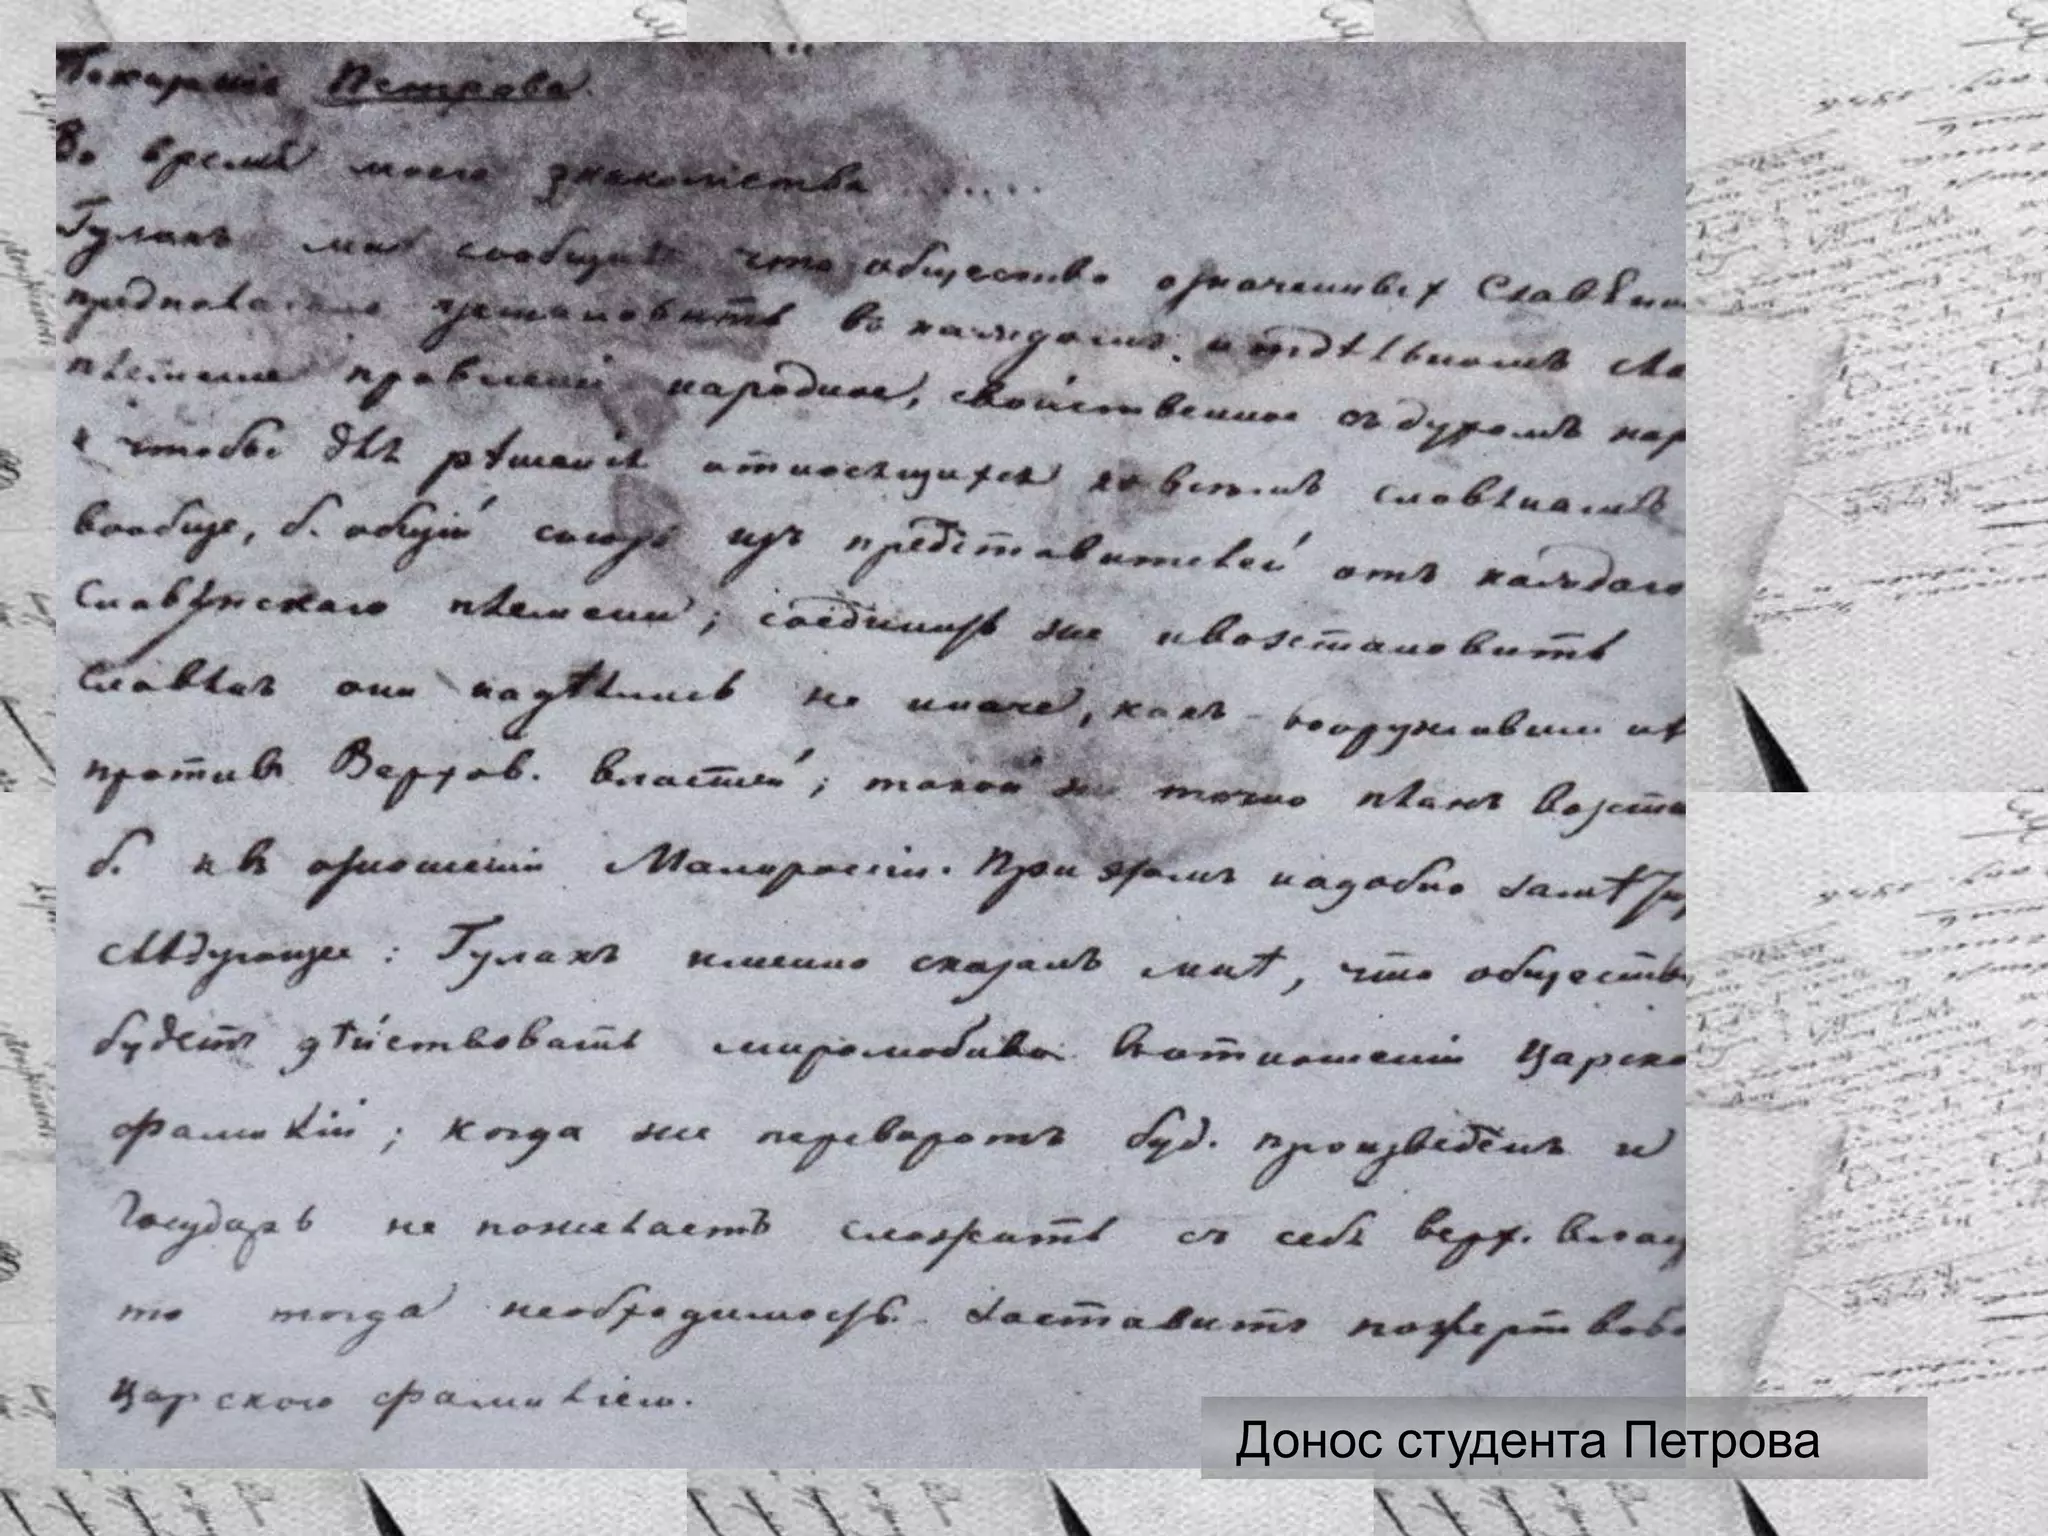 Показанія Петрова.
Во время моего знакомства .......
Гулакъ мнѣ сообщилъ что общество означенныхъ Славянъ
предполагало установить въ каждомъ отдѣльномъ
племени правленіе народное, свойственное съ духомъ нар
и чтобы для рѣшенія относящихся ко всѣмъ славянамъ
вообще, б. общій союзъ изъ представителей отъ каждаго
Славянскаго племени; соединить же и возстановить
Славянъ они надѣялись не иначе, какъ вооруживши ихъ
противъ Верхов. властей; такой же точно планъ
б. и въ отношеніи Малороссіи. При этомъ надобно замѣтить
слѣдующее: Гулакъ именно сказалъ мнѣ, что общество
будетъ дѣйствовать миролюбиво въ отношеніи Царской
фамиліи; когда же переворотъ буд. произведенъ и
Государь не пожелаетъ сложить съ себя верх. власт
то тогда необходимость заставитъ пожертвова
Царскою фамиліею.
Донос студента Петрова